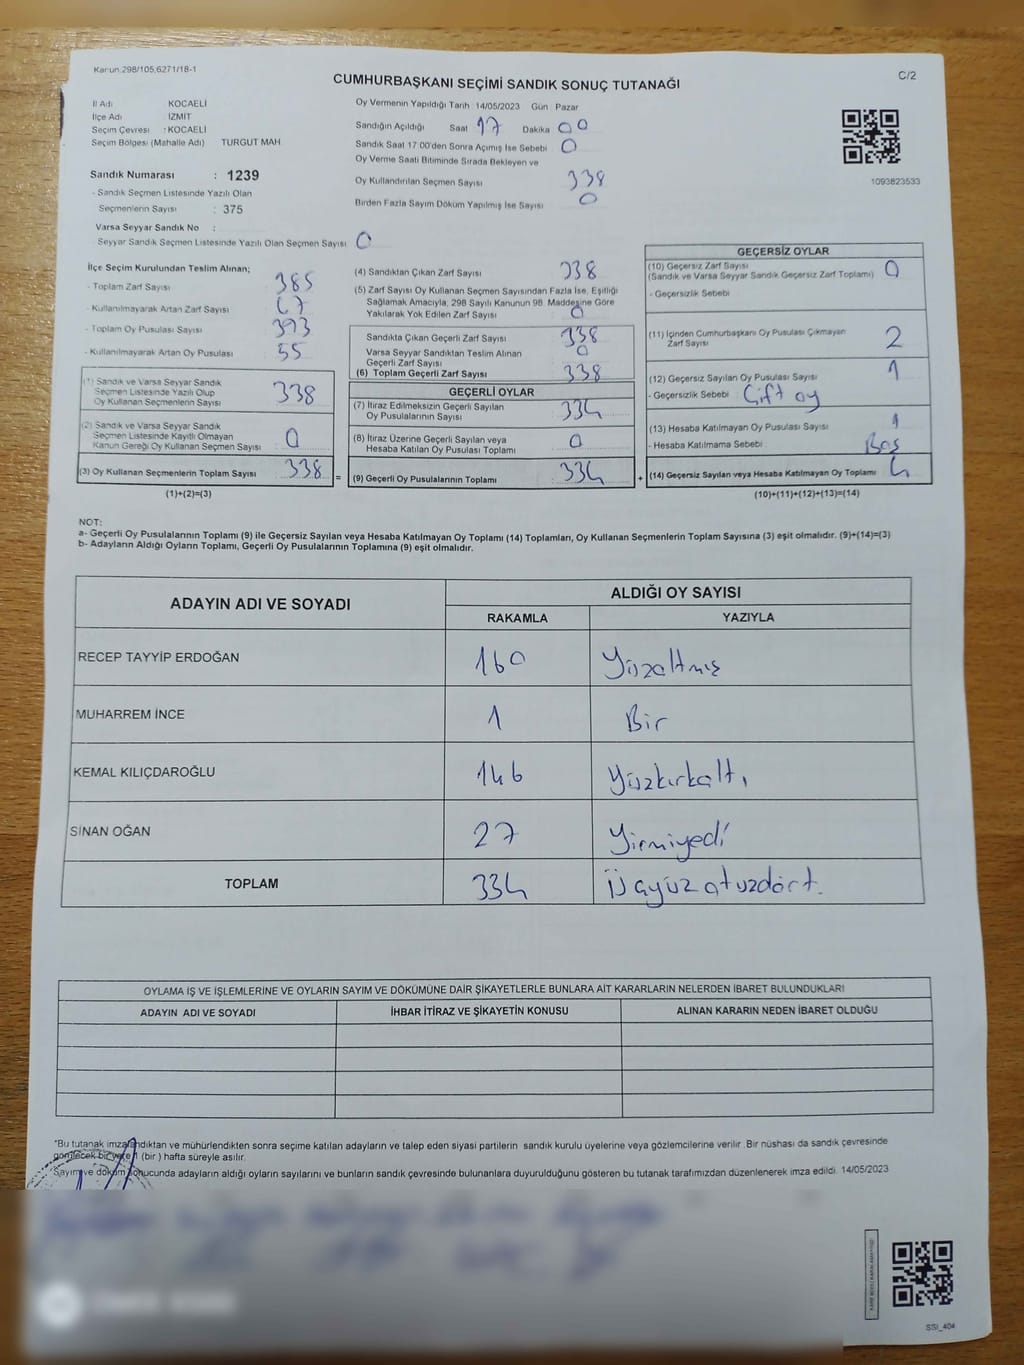 Kanun:298/105,6271/18-1
C/2
CUMHURBAŞKANI SEÇİMİ SANDIK SONUÇ TUTANAĞI
İl Adı KOCAELİ
İlçe Adı İZMİT
Seçim Çevresi : KOCAELİ
Seçim Bölgesi (Mahalle Adı) TURGUT MAH
Sandık Numarası : 1239
- Sandık Seçmen Listesinde Yazılı Olan
Seçmenlerin Sayısı : 375
Varsa Seyyar Sandık No :
Seyyar Sandık Seçmen Listesinde Yazılı Olan Seçmen Sayısı 0
Oy Vermenin Yapıldığı Tarih 14/05/2023 Gün Pazar
Sandığın Açıldığı Saat 17 Dakika 00
Sandık Saat 17 00'den Sonra Açılmış İse Sebebi 0
Oy Verme Saati Bitiminde Sırada Bekleyen ve
Oy Kullandırılan Seçmen Sayısı 338
Birden Fazla Sayım Döküm Yapılmış İse Sayısı 0
1093823533
İlçe Seçim Kurulundan Teslim Alınan;
- Toplam Zarf Sayısı 385
- Kullanılmayarak Artan Zarf Sayısı 47
- Toplam Oy Pusulası Sayısı 393
- Kullanılmayarak Artan Oy Pusulası 55
(1) Sandık ve Varsa Seyyar Sandık
Seçmen Listesinde Yazılı Olup
Oy Kullanan Seçmenlerin Sayısı 338
(2) Sandık ve Varsa Seyyar Sandık
Seçmen Listesinde Kayıtlı Olmayan
Kanun Gereği Oy Kullanan Seçmen Sayısı 0
(3) Oy Kullanan Seçmenlerin Toplam Sayısı 338
(1)+(2)=(3)
(4) Sandıktan Çıkan Zarf Sayısı 338
(5) Zarf Sayısı Oy Kullanan Seçmen Sayısından Fazla İse, Eşitliği
Sağlamak Amacıyla, 298 Sayılı Kanunun 98. Maddesine Göre
Yakılarak Yok Edilen Zarf Sayısı 0
Sandıkta Çıkan Geçerli Zarf Sayısı 338
Varsa Seyyar Sandıktan Teslim Alınan
Geçerli Zarf Sayısı 0
(6) Toplam Geçerli Zarf Sayısı 338
GEÇERLİ OYLAR
(7) İtiraz Edilmeksizin Geçerli Sayılan
Oy Pusulalarının Sayısı 334
(8) İtiraz Üzerine Geçerli Sayılan veya
Hesaba Katılan Oy Pusulası Toplamı 0
= (9) Geçerli Oy Pusulalarının Toplamı 334 +
GEÇERSİZ OYLAR
(10) Geçersiz Zarf Sayısı
(Sandık ve Varsa Seyyar Sandık Geçersiz Zarf Toplamı) 0
- Geçersizlik Sebebi
(11) İçinden Cumhurbaşkanı Oy Pusulası Çıkmayan
Zarf Sayısı 2
(12) Geçersiz Sayılan Oy Pusulası Sayısı 1
- Geçersizlik Sebebi Çift oy
(13) Hesaba Katılmayan Oy Pusulası Sayısı 1
- Hesaba Katılmama Sebebi : Boş
(14) Geçersiz Sayılan veya Hesaba Katılmayan Oy Toplamı 4
(10)+(11)+(12)+(13)=(14)
NOT:
a- Geçerli Oy Pusulalarının Toplamı (9) ile Geçersiz Sayılan veya Hesaba Katılmayan Oy Toplamı (14) Toplamları, Oy Kullanan Seçmenlerin Toplam Sayısına (3) eşit olmalıdır. (9)+(14)=(3)
b- Adayların Aldığı Oyların Toplamı, Geçerli Oy Pusulalarının Toplamına (9) eşit olmalıdır.
ADAYIN ADI VE SOYADI ALDIĞI OY SAYISI
RAKAMLA YAZIYLA
RECEP TAYYİP ERDOĞAN 160 Yüzaltmış
MUHARREM İNCE 1 Bir
KEMAL KILIÇDAROĞLU 146 Yüzkırkaltı
SİNAN OĞAN 27 Yirmiyedi
TOPLAM 334 Üçyüzotuzdört.
OYLAMA İŞ VE İŞLEMLERİNE VE OYLARIN SAYIM VE DÖKÜMÜNE DAİR ŞİKAYETLERLE BUNLARA AİT KARARLARIN NELERDEN İBARET BULUNDUKLARI
ADAYIN ADI VE SOYADI İHBAR İTİRAZ VE ŞİKAYETİN KONUSU ALINAN KARARIN NEDEN İBARET OLDUĞU
*Bu tutanak imzalandıktan ve mühürlendikten sonra seçime katılan adayların ve talep eden siyasi partilerin sandık kurulu üyelerine veya gözlemcilerine verilir. Bir nüshası da sandık çevresinde
görülecek bir yere 1 (bir ) hafta süreyle asılır.
Sayım ve döküm sonucunda adayların aldığı oyların sayılarını ve bunların sandık çevresinde bulunanlara duyurulduğunu gösteren bu tutanak tarafımızdan düzenlenerek imza edildi. 14/05/2023
SSİ_404